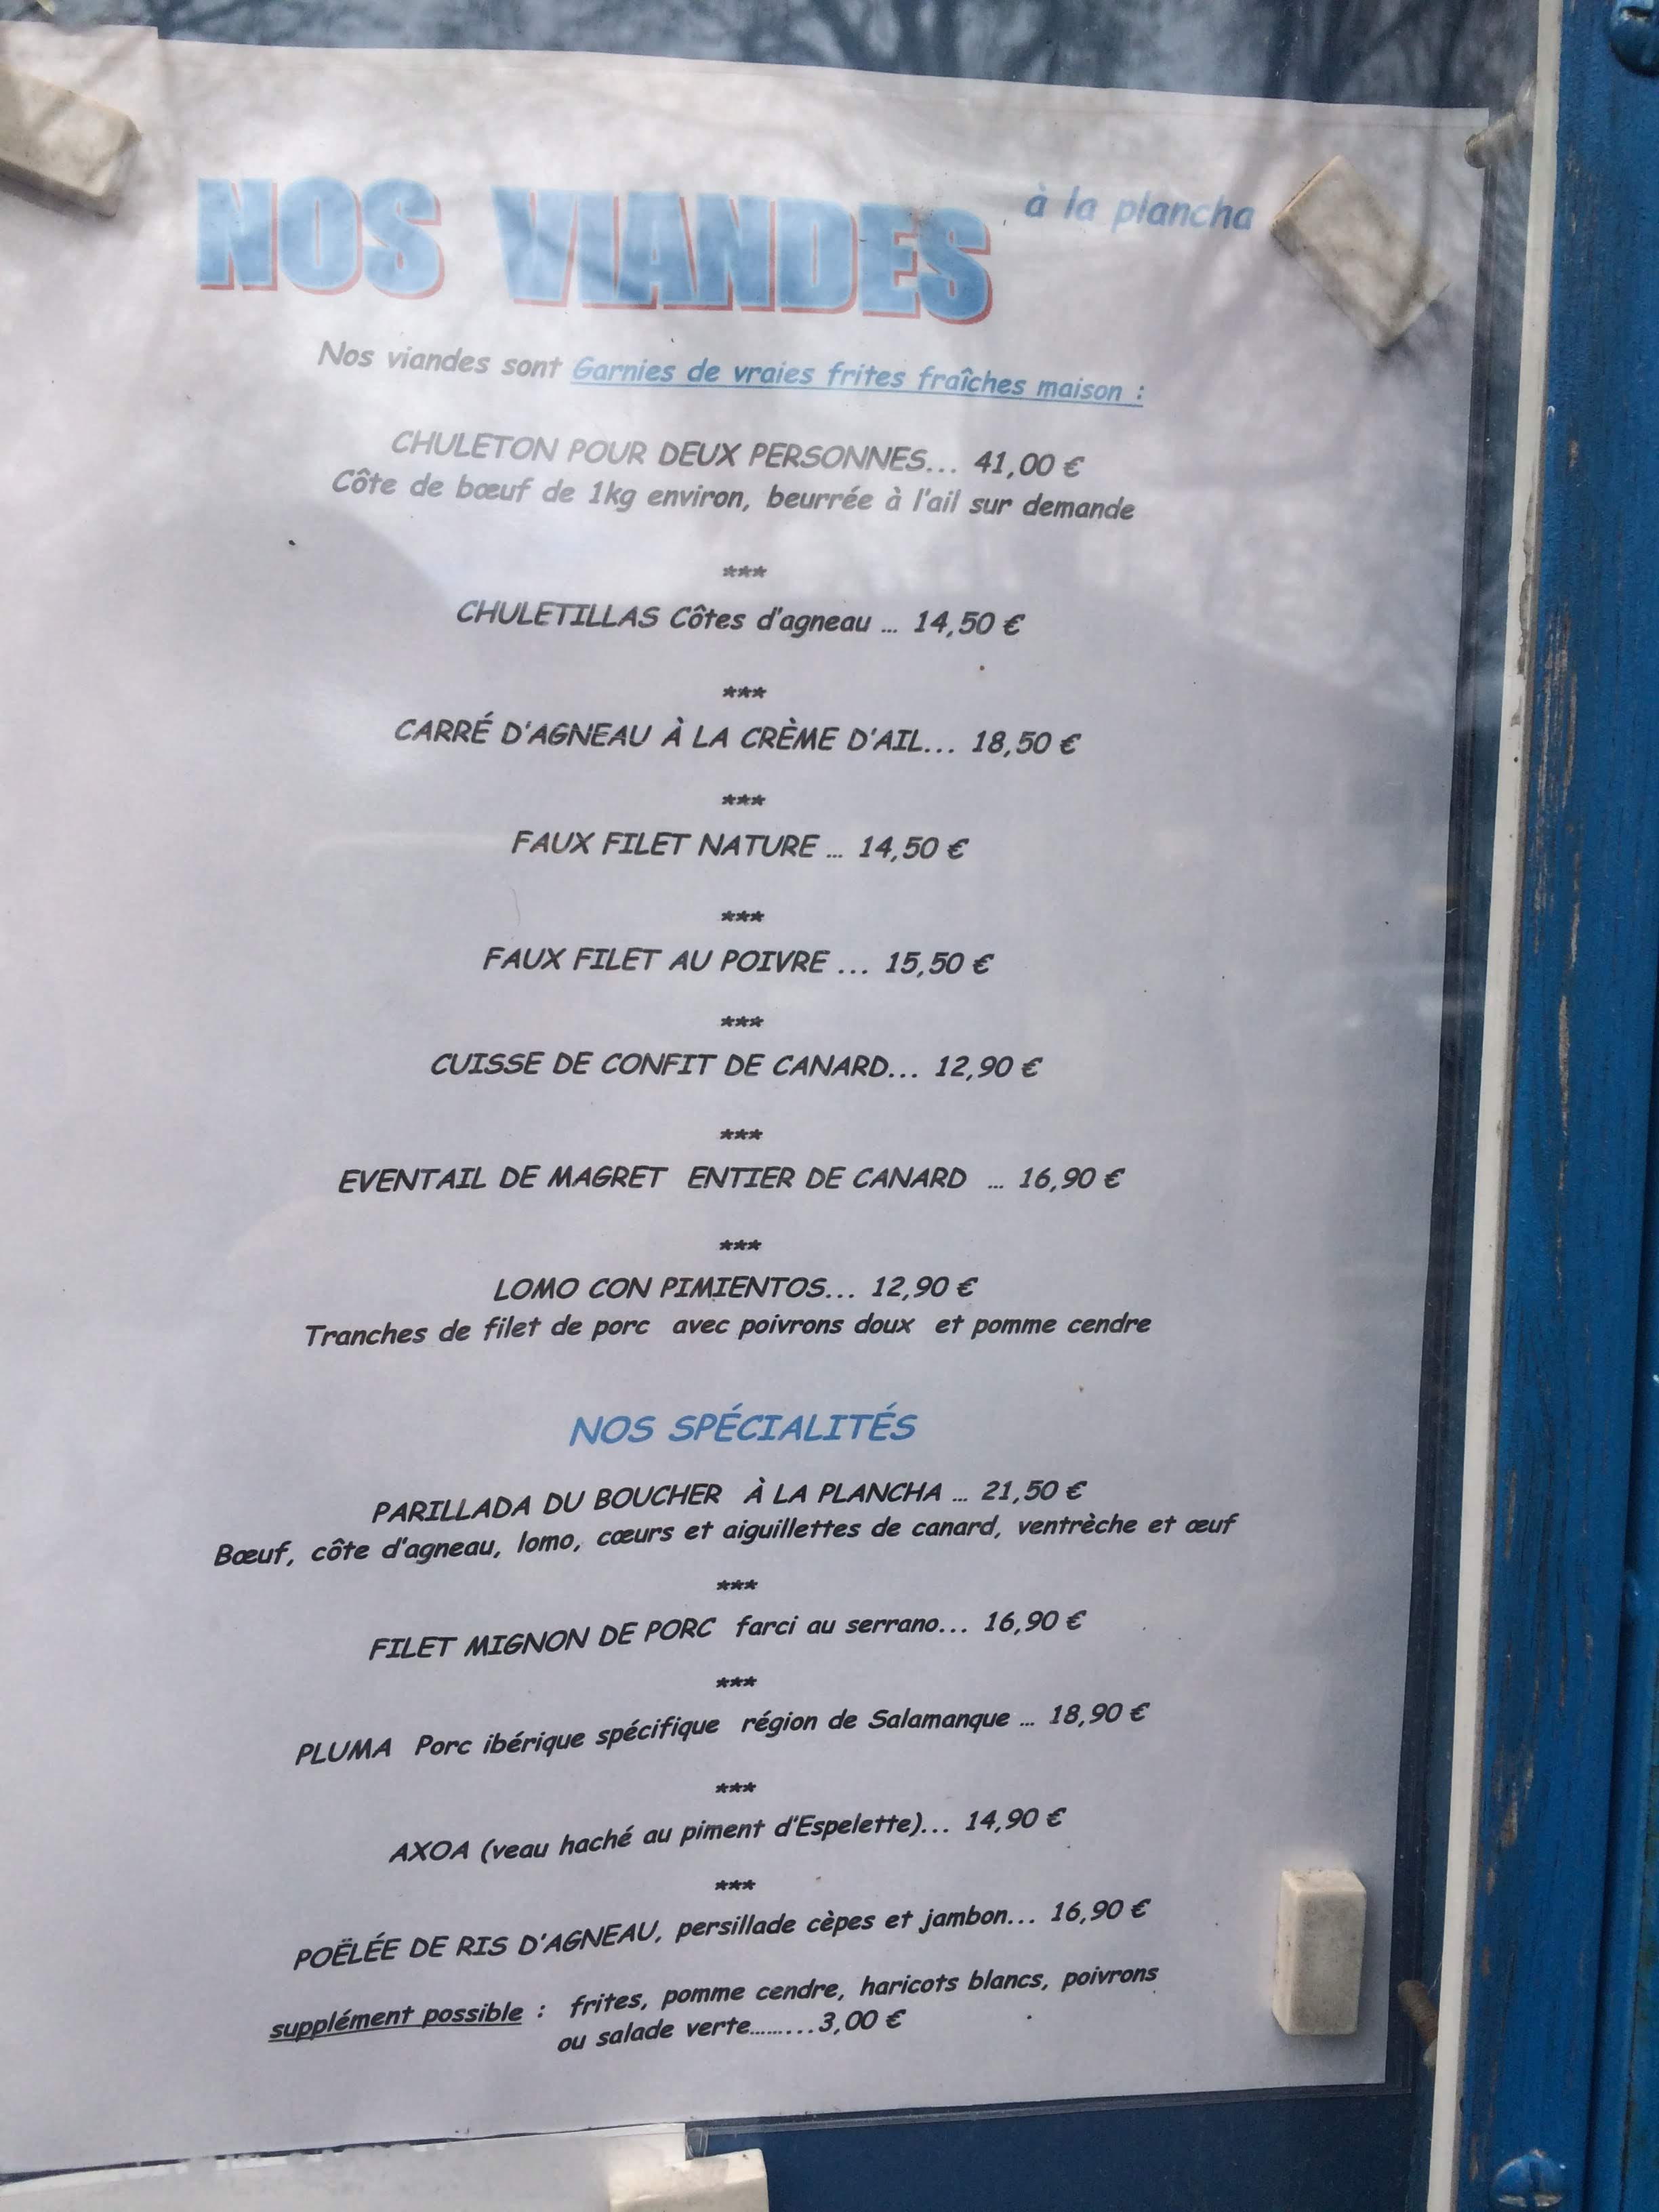 NOS VIANDES à la plancha
Nos viandes sont Garnies de vraies frites fraîches maison :
CHULETON POUR DEUX PERSONNES... 41,00 €
Côte de bœuf de 1kg environ, beurrée à l'ail sur demande
***
CHULETILLAS Côtes d'agneau ... 14,50 €
***
CARRÉ D'AGNEAU À LA CRÈME D'AIL... 18,50 €
***
FAUX FILET NATURE ... 14,50 €
***
FAUX FILET AU POIVRE ... 15,50 €
***
CUISSE DE CONFIT DE CANARD... 12,90 €
***
EVENTAIL DE MAGRET ENTIER DE CANARD ... 16,90 €
***
LOMO CON PIMIENTOS... 12,90 €
Tranches de filet de porc avec poivrons doux et pomme cendre
NOS SPÉCIALITÉS
PARILLADA DU BOUCHER À LA PLANCHA ... 21,50 €
Bœuf, côte d'agneau, lomo, cœurs et aiguillettes de canard, ventrèche et œuf
***
FILET MIGNON DE PORC farci au serrano... 16,90 €
***
PLUMA Porc ibérique spécifique région de Salamanque ... 18,90 €
***
AXOA (veau haché au piment d'Espelette)... 14,90 €
***
POËLÉE DE RIS D'AGNEAU, persillade cèpes et jambon... 16,90 €
supplément possible : frites, pomme cendre, haricots blancs, poivrons
ou salade verte.........3,00 €